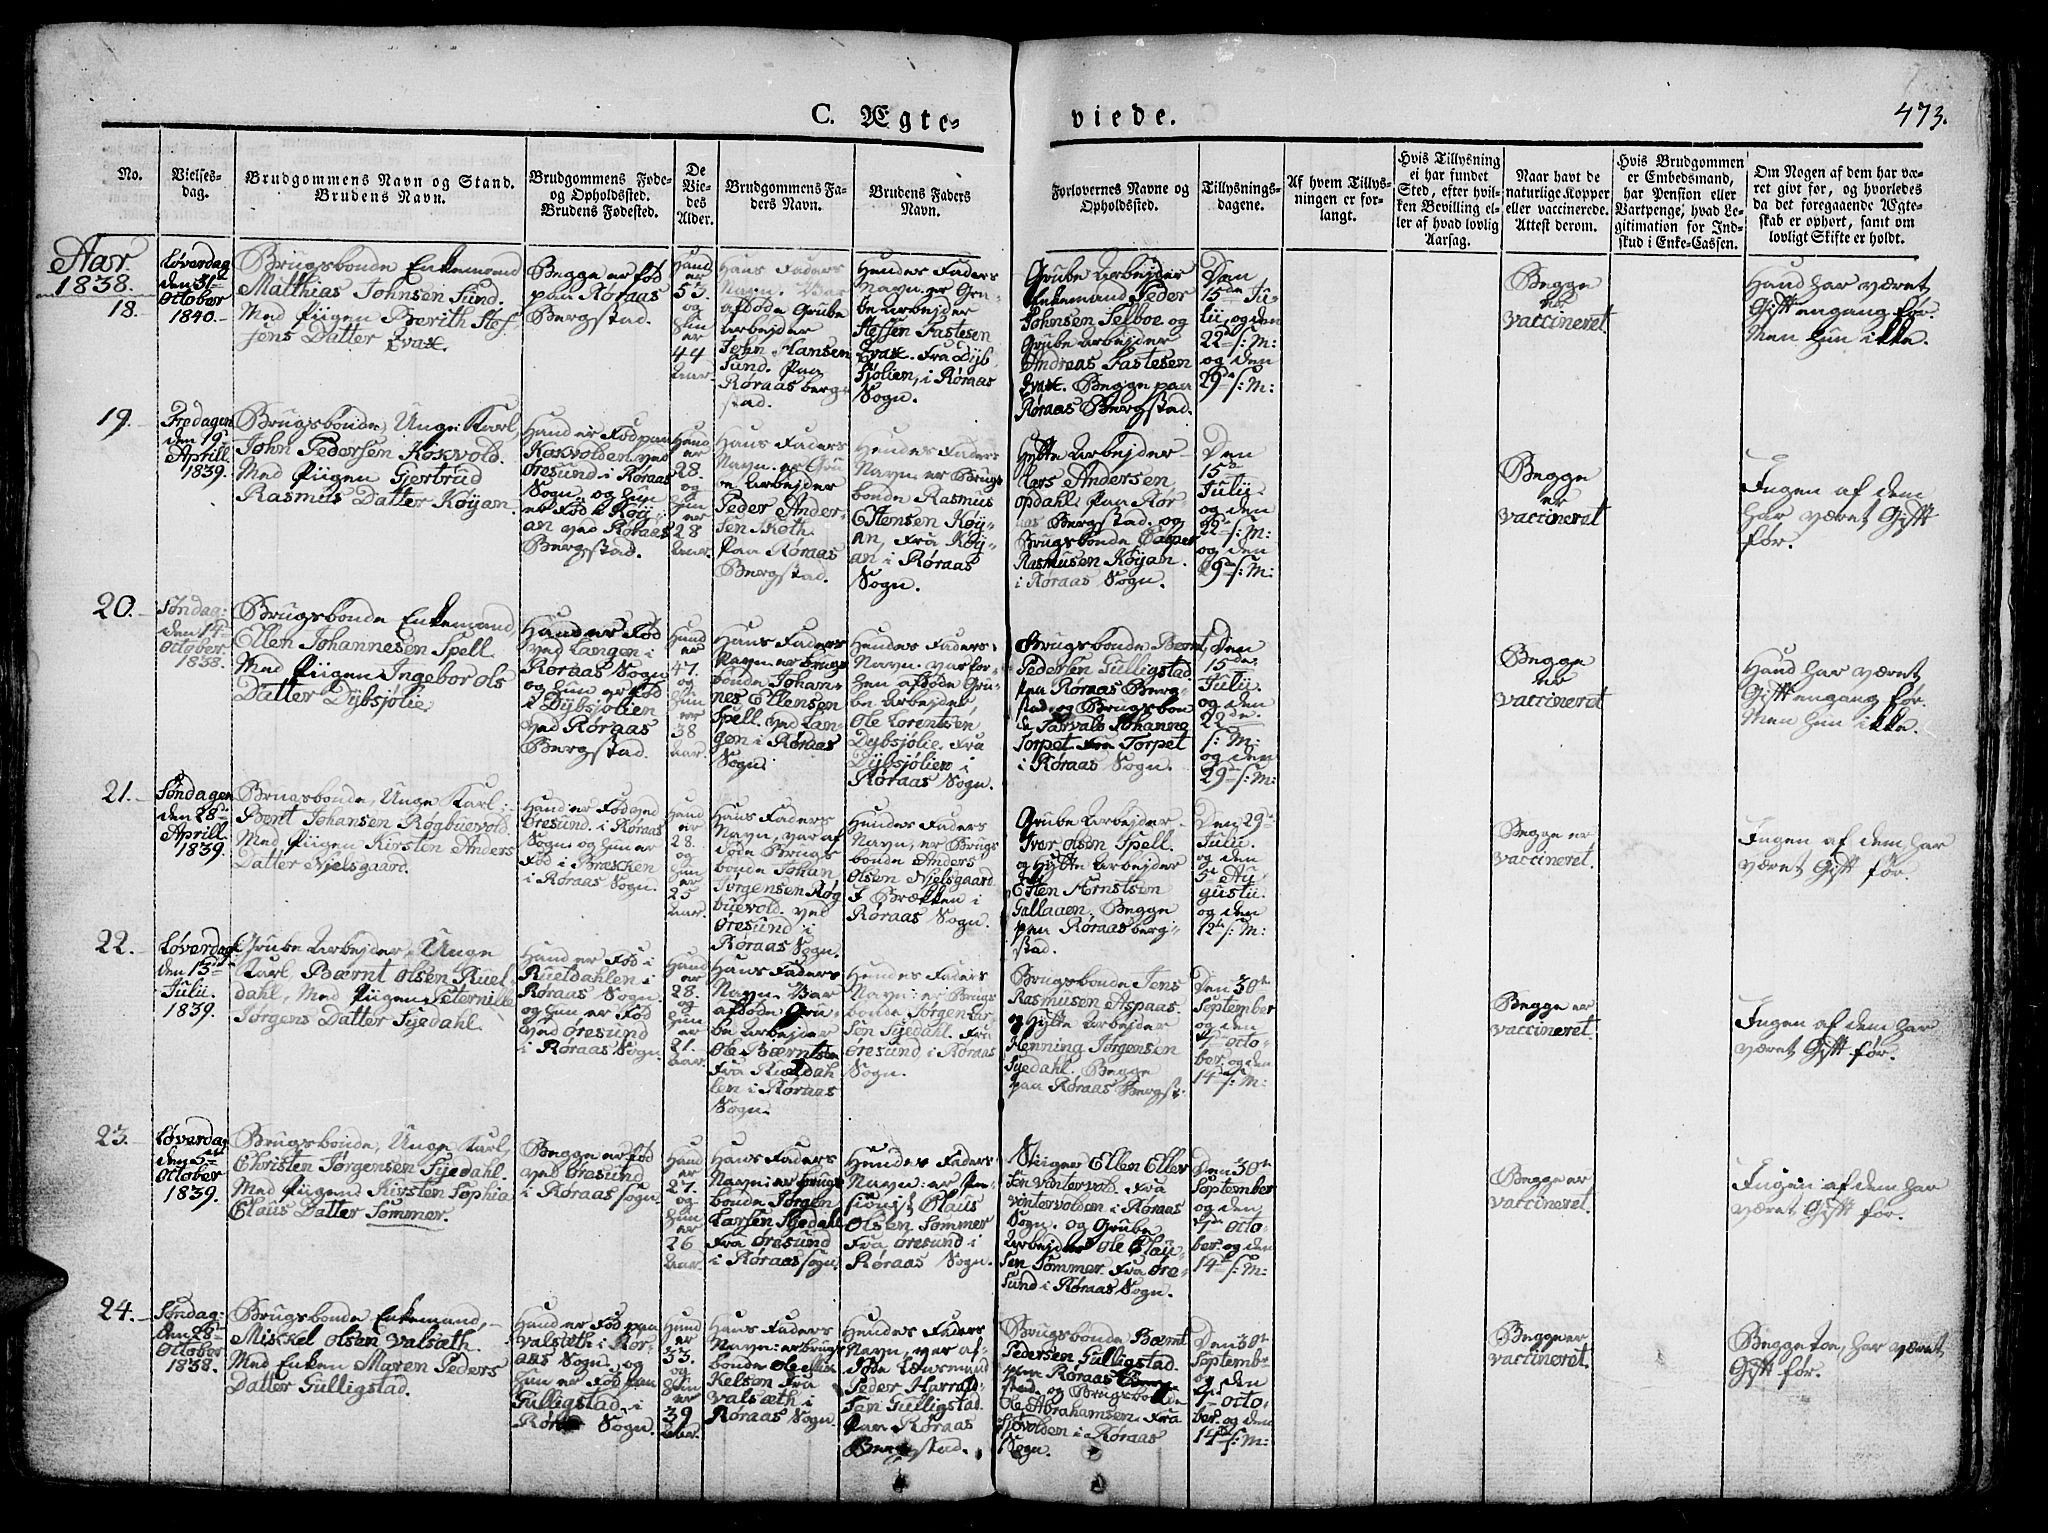 C. Ægte-
viede.
473.
No.
Vielses-
dag.
Brudgommens Navn og Stand.
Brudens Navn.
Brudgommens Føde-
og Opholdssted.
Brudens Fødested.
De
Vie-
des
Alder.
Brudgommens Fa-
ders Navn.
Brudens Faders
Navn.
Forlovernes Navne og
Opholdssted.
Tillysnings-
dagene.
Af hvem Tillys-
ningen er for-
langt.
Hvis Tillysning
ei har fundet
Sted, efter hvil-
ken Bevilling el-
ler af hvad lovlig
Aarsag.
Naar havt de
naturlige Kopper
eller vaccinerede.
Attest derom.
Hvis Brudgommen
er Embedsmand,
har Pension eller
Vartpenge, hvad Le-
gitimation for Ind-
skud i Enke-Cassen.
Om Nogen af dem har væ-
ret givt før, og hvorledes
da det foregaaende Ægte-
skab er ophørt, samt om
lovligt Skifte er holdt.
Aar.
1838.
18.
Løverdag
den 31te
October
1840.
Brugsbonde Enkemand
Matthias Johnsen Sund.
Med Piigen Berith Stef
fens Datter Evax.
Begge er fød
paa Røraas
Bergstad.
Hand
er
53.
og
Hun
er
44
Aar.
Hans Faders
Navn. Var
afdøde Grube
Arbejder
John Hansen
Sund. Paa
Røraas berg-
stad.
Hendes Faders
Navn er Gru-
be Arbejder
Steffen Fastesen
Evax. Fra Dyb
sjølien, i Røraas
Sogn.
Grube Arbejder
Enkemand Peder
Johnsen Selboe og
Grube Arbejder
Andreas Fastesen
Evax. Begge paa
Røraas Bergstad.
Den
15de Ju-
lii, og den
22de s: M:
og den
29de s: M:
Begge
er
vaccineret
Hand har været
Gift engang før.
Men hun ikke.
19.
Fredagen
den 19de
Aprill
1839.
Brugsbonde, Unge Karl,
John Pedersen Kokvold.
Med Piigen Gjertrud
Rasmus Datter Køyan.
Hand er Fød paa
Kokvolden ved
Øresund i Røraas
Sogn, og hun
er Fød i Køy-
an ved Røraas
Bergstad.
Hand
er
28.
og
Hun
er
28
Aar.
Hans Faders
Navn. er Gru
e Arbejder
Peder Ander-
sen Koth.
Paa Røraas
Bergstad.
Hendes Faders
Navn er Brugs
bonde Rasmus
Estensen Køy-
an, Fra Køy-
an i Røraas
Sogn.
Hytte Arbejder
Lars Andersen
Opdahl Paa Rør-
aas Bergstad og
Brugsbonde Casper
Rasmusen Køyan.
i Røraas Sogn.
Den
15de
Julij.
og den
22de s: M:
og den
29de s: M:
Begge
er
vaccineret
Ingen af dem
har været Gift
før.
20.
Søndag:
den 14de
October
1838.
Brugsbonde Enkemand,
Ellen Johannesen Spell.
Med Piigen Ingebor Ols
Datter Dybsjølie.
Hand er Fød
ved Langen i
Røraas Sogn
og hun er fød
i Dybsjølien
ved Røraas
Bergstad.
Hand
er
47.
og
Hun
er
38
Aar.
Hans Faders
Navn er brugs
bonde Johan-
nes Ellensen
Spell, ved Lan-
gen i Røraas
Sogn.
Hendes Faders
Navn. var for-
hen afdøde Gru-
be Arbejder,
Ole Lorentsen
Dybsjølie. Fra
Dybsjølien i
Røraas Sogn.
Brugsbonde Bernt
Pedersen Gulligstad
Paa Røraas Berg-
stad, og Brugsbon
de Tarvals Johanne
Torpet Fra Torpet
i Røraas Sogn.
Den
15de
Julij.
og den
22de
s: M:
og den
29de s: M:
Begge
er
vaccineret
Hand har været
Gift engang før.
Men hun ikke.
21.
Søndagen
den 28de
Aprill
1839.
Brugsbonde, Unge Karl:
Bent Johansen Røgbuevold.
Med Piigen Kirsten Anders
Datter Njelsgaard.
Hand er Fød ved
Øresund. i Røraas
Sogn og hun er
Fød i Brækken
i Røraas Sogn.
Hand
er
28.
og
Hun
er
25
Aar.
Hans Faders
Navn, var af
døde Brugs
bonde Johan
Jørgensen Røg
buevold. ved
Øresund i
Røraas Sogn.
Hendes Faders
Navn, er Brugs
bonde Anders
Olsen Njelsgaard.
I Brækken i
Røraas Sogn.
Grube Arbejder
Iver Olsen Spell.
og Hytte Arbejder
Esten Arntsen
Gallaaen, Begge
paa Røraas berg-
stad.
Den 29de
Julii.
og den
5te Au-
gustii.
og den
12te s: M:
Begge er
vaccineret.
Ingen af dem har
været Gift før.
22.
Løverdag
den 13de
Julii.
1839.
Grube Arbejder, Unge
Karl Bærnt Olsen Ruet
dahl, Med Piigen Peternille
Jørgens Datter Syedahl.
Hand er Fød i
Ruetdahlen i
Røraas Sogn.
og hun er Fød
ved Øresund
i Røraas Sogn.
Hand
er
28.
og
Hun
er
21.
Aar.
Hans Faders
Navn. Var
afdøde Gru-
be Arbejder
Ole Bærntsen
Fra Ruetdah
len i Røraas
Sogn.
Hendes Faders
Navn: er Brugs
bonde Jørgen Lar-
sen Syedahl. Fra
Øresund i Røraas
Sogn.
Brugsbonde Jens
Rasmusen Aspaas.
og Hytte Arbejder
Henning Jørgensen
Syedahl. Begge
paa Røraas Bergst:
Den 30te
September
og den
7de Octo-
ber. og den
14de s: M:
Begge er
vaccineret.
Ingen af dem har
været Gift før.
23.
Løverdag
den 5te
October
1839.
Brugsbonde, Unge Karl,
Christen Jørgensen Syedahl.
Med Piigen Kirsten Sophia
Claus Datter Sommer.
Begge er fød
ved Øresund
i Røraas sogn.
Hand
er
27.
og
Hun
er
26
Aar.
Hans Faders
Navn: er brugs
bonde Jørgen
Larsen Syedahl
Fra Øresund
i Røraas sogn.
Hendes Faders
Navn: er Pen-
sionist Claus
Olsen Sommer
Fra Øresund i
Røraas Sogn.
Stiiger Ellen Eller
sen Vintervol. Fra
Vintervolden i Røraas
Sogn. og Grube
Arbejder Ole Clau-
sen Sommer. Fra Øre-
sund i Røraas Sogn.
Den 30te
September
og den
7de Octo-
ber. og den
14de s: M:
Begge er
vaccineret.
Ingen af dem har
været Gift før.
24.
Søndag:
den 28de
October
1838.
Brugsbonde Enkemand,
Mickel Olsen Valsæth.
Med Enken Maren Peders
Datter Gulligstad.
Hand er Fød paa
Valsæth i Rør-
aas Sogn. og
hun er Fød paa
Gulligstad, i
Røraas Sogn.
Hand
er
33.
og
Hun
er
39
Aar.
Hans Faders
Navn: er brugs
bonde Ole Mic
kelsen Fra
Valsæth i
Røraas Sogn.
Hendes Faders
Navn, var af-
døde Lænsmand
Peder Harrald-
sen Gulligstad.
Paa Røraas
Bergstad.
Brugsbonde Bærnt
Pedersen Gulligstad.
paa Røraas Berg-
stad. og Brugsbonde
Ole Abrahamsen. Fra
Sjøvolden i Røraas
Sogn.
Den 30te
September
og den
7de Octo-
ber. og den
14de s: M:
Begge er
vaccineret.
Begge toe, har været
Gift før.